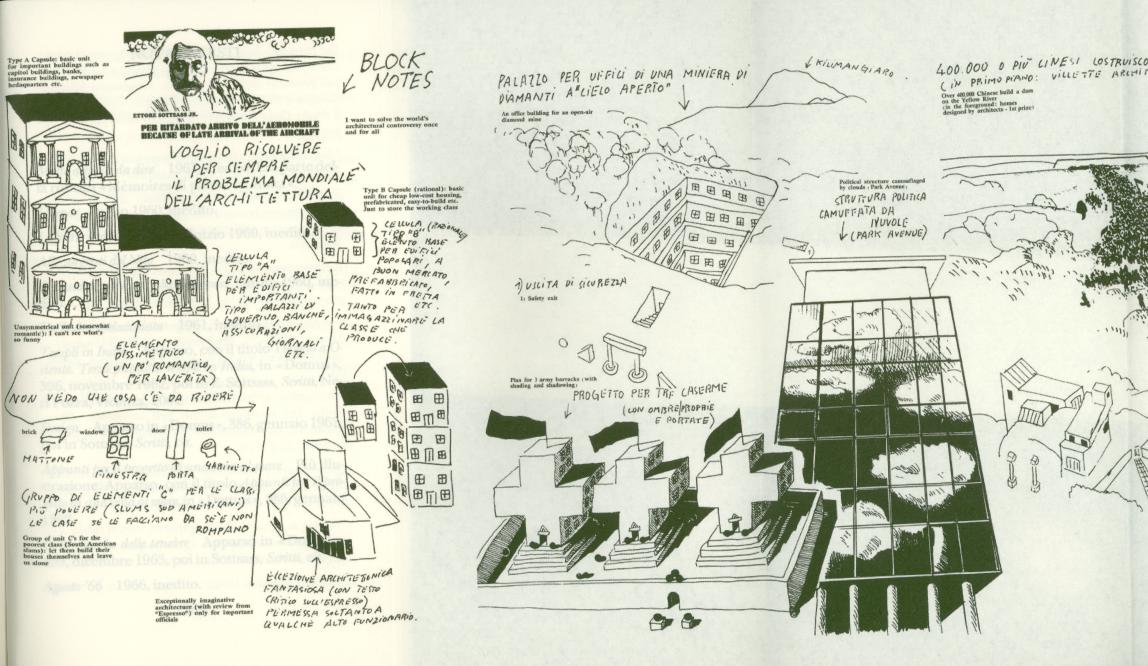 Type A Capsule: basic unit
for important buildings such as
capitol buildings, banks,
insurance buildings, newspaper
hedaquarters etc.
ETTORE SOTTSASS JR.
PER RITARDATO ARRIVO DELL'AEROMOBILE
BECAUSE OF LATE ARRIVAL OF THE AIRCRAFT
BLOCK
NOTES
I want to solve the world's
architectural controversy once
and for all
VOGLIO RISOLVERE
PER SEMPRE
IL PROBLEMA MONDIALE
DELL'ARCHITETTURA
Type B Capsule (rational): basic
unit for cheap low-cost housing,
prefabricated, easy-to-build etc.
Just to store the working class
CELLULA (RAZIONALE)
TIPO "B"
ELEMENTO BASE
PER EDIFICI
POPOLARI, A
BUON MERCATO,
PREFABBRICATO,
FATTO IN FRETTA
ETC.
TANTO PER
IMMAGAZZINARE LA
CLASSE CHE
PRODUCE.
CELLULA
TIPO "A"
ELEMENTO BASE
PER EDIFICI
IMPORTANTI.
TIPO PALAZZI DI
GOVERNO, BANCHE,
ASSICURAZIONI,
GIORNALI
ETC.
Unsymmetrical unit (somewhat
romantic): I can't see what's
so funny
ELEMENTO
DISSIMETRICO
(UN PO' ROMANTICO,
PER LA VERITÀ)
NON VEDO CHE COSA C'È DA RIDERE
brick
window
door
toilet
MATTONE
FINESTRA
PORTA
GABINETTO
GRUPPO DI ELEMENTI "C" PER LE CLASSI
PIÙ POVERE (SLUMS SUD AMERICANI)
LE CASE SE LE FACCIANO DA SÉ E NON
ROMPANO
Group of unit C's for the
poorest class (South American
slums): let them build their
houses themselves and leave
us alone
Exceptionally imaginative
architecture (with review from
"Espresso") only for important
officials
ECCEZIONE ARCHITETTONICA
FANTASIOSA (CON TESTO
CRITICO SULL'ESPRESSO)
PERMESSA SOLTANTO A
QUALCHE ALTO FUNZIONARIO.
PALAZZO PER UFFICI DI UNA MINIERA DI
DIAMANTI A "CIELO APERTO"
An office building for an open-air
diamond mine
KILIMANGIARO
1) USCITA DI SICUREZZA
1: Safety exit
Plan for 3 army barracks (with
shading and shadowing)
PROGETTO PER TRE CASERME
(CON OMBRE PROPRIE
E PORTATE)
Political structure camouflaged
by clouds (Park Avenue)
STRUTTURA POLITICA
CAMUFFATA DA
NUVOLE
(PARK AVENUE)
400.000 O PIÙ CINESI COSTRUISCO
(IN PRIMO PIANO: VILLETTE ARCHI
Over 400.000 Chinese build a dam
on the Yellow River
(in the foreground: homes
designed by architects - 1st prize)